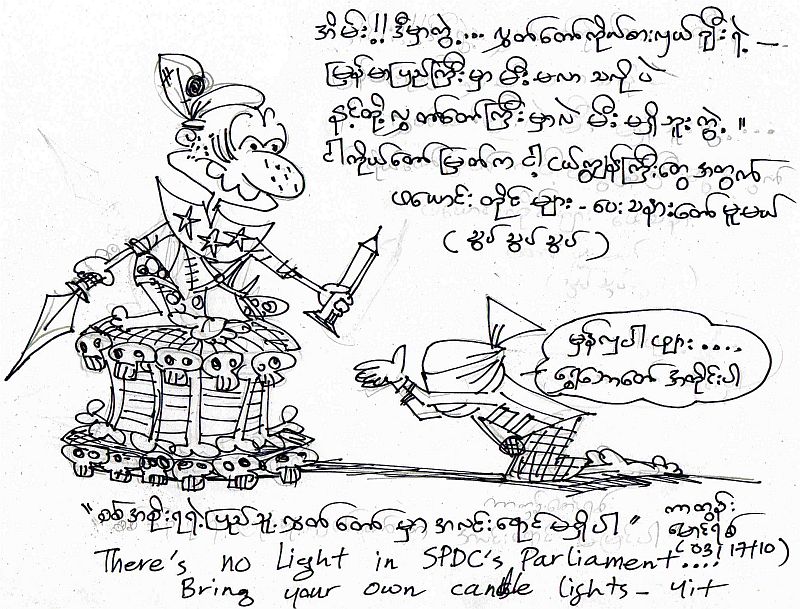 အိမ်း!! ဒီမှာကွဲ့.... လွှတ်တော်ကိုယ်စားလှယ် ချိုးရဲ့ —
မြန်မာပြည်ကြီးမှာ မီးမလာ သလို ပဲ
နင့်တို့လွှတ်တော်ကြီးမှာလဲ မီး မရှိဘူး ကွဲ့ "
ငါကိုယ်တော် မြတ်က ငါ့ ငယ်ကျွန်ကြီးတွေ အတွက်
ဖယောင်း တိုင် များ - ပေး သနားတော် မူမယ်
( သွပ် သွပ် သွပ် )
မှန်လှပါ ဖျား ....
ရွှေဘောတော် အတိုင်းပါ
" စစ်အစိုးရရဲ့ ပြည်သူ့ လွှတ်တော် မှာ အလင်းရောင် မရှိပါ "
ကာတွန်း
မောင်ရစ်
( 03/17/10 )
There's no Light in SPDC's Parliament....
Bring your own candle lights - yit